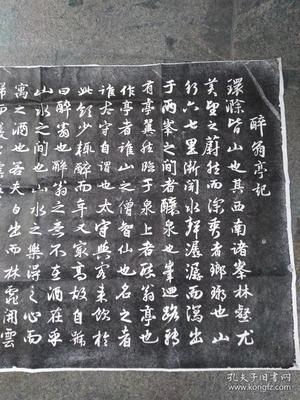 醉翁亭记
環滁皆山也其西南诸峯林壑尤
美望之蔚然而深秀者瑯琊也山
行六七里漸闻水聲潺潺而瀉出
于两峯之间者釀泉也峯迴路转
有亭翼然临于泉上者醉翁亭也
作亭者谁山之僧智仙也名之者
谁太守自谓也太守與客来饮於
此饮少辄醉而年又最高故自號
曰醉翁也醉翁之意不在酒在乎
山水之间也山水之樂得之心而
寓之酒也若夫日出而林霏开雲
歸而
孔夫子旧书网